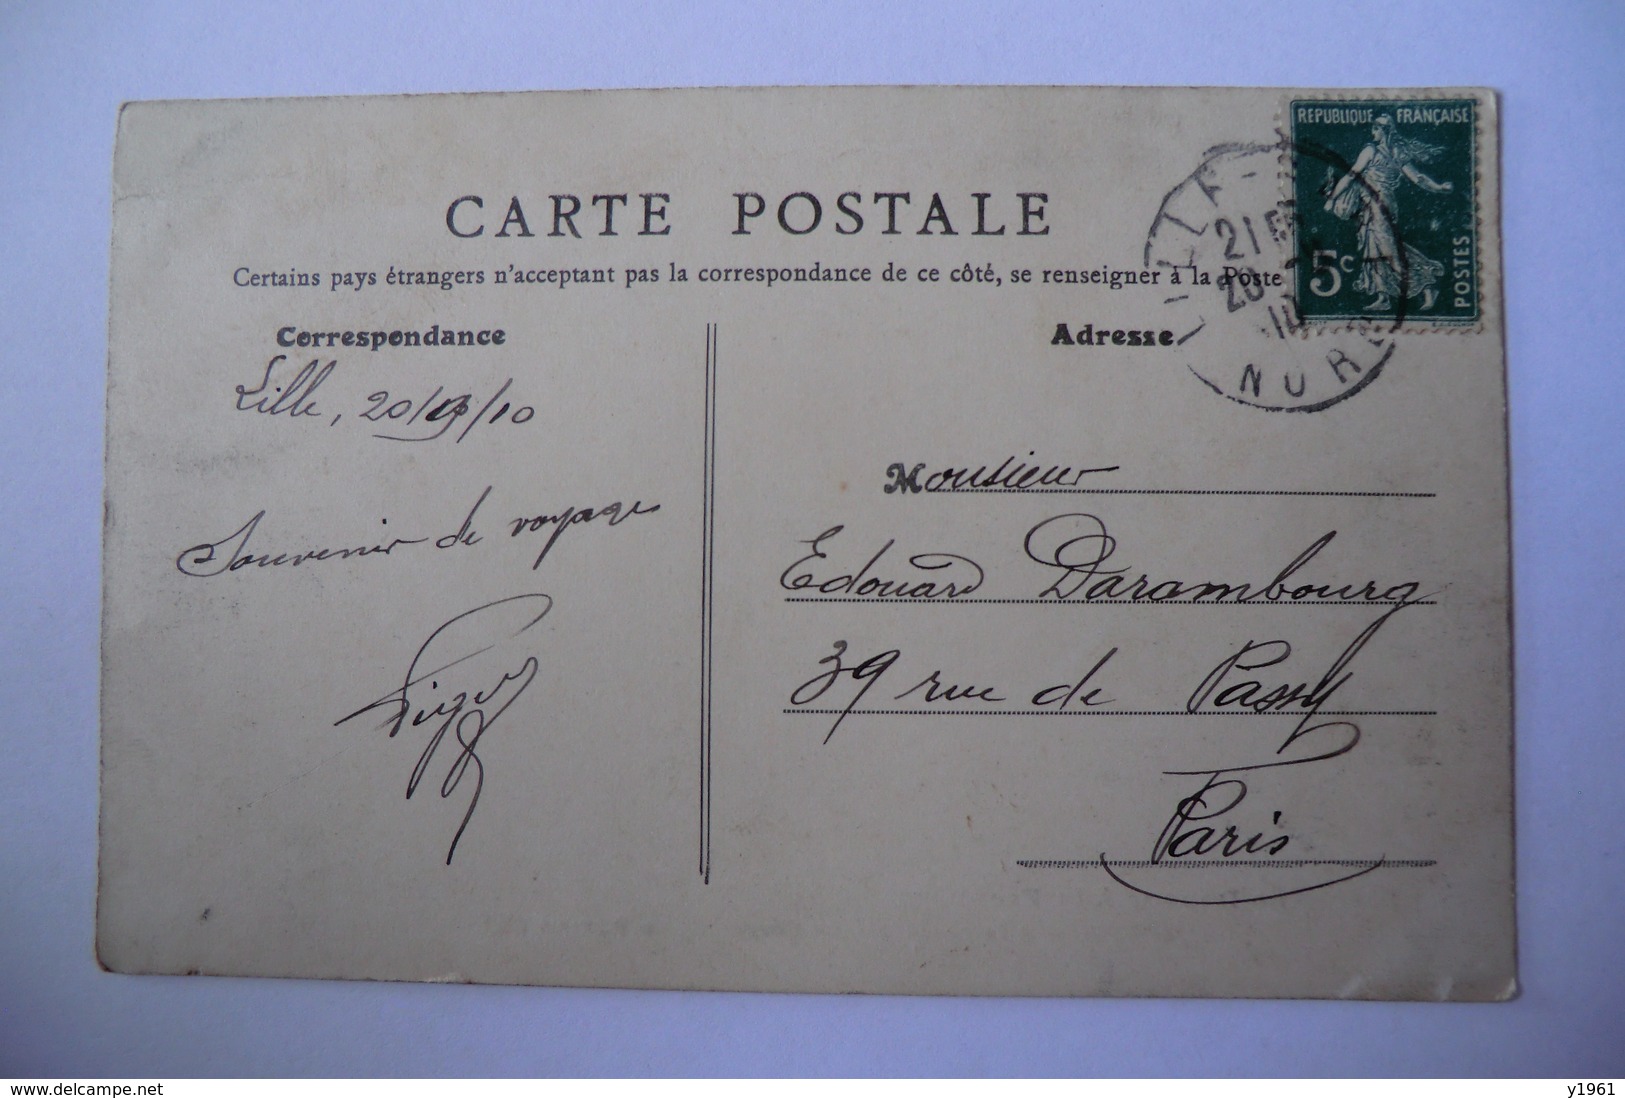 REPUBLIQUE FRANÇAISE
5c
POSTES
LILLE
21
NORD
CARTE POSTALE
Certains pays étrangers n'acceptant pas la correspondance de ce côté, se renseigner à la Poste
Correspondance
Adresse
Lille, 20/ /10
Souvenir de voyage
Monsieur
Edouard Darambourg
39 rue de Passy
Paris
www.delcampe.net
y1961